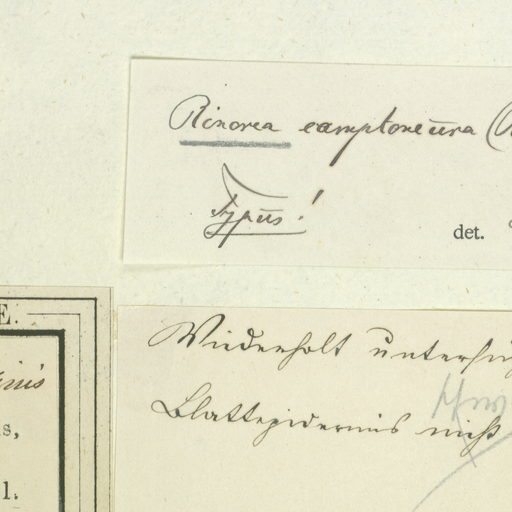 Rinorea camptoneura (R
Typus!
det.
E.
inis
s,
l.
Wiederholt untersuch
Blattepidermis nicht